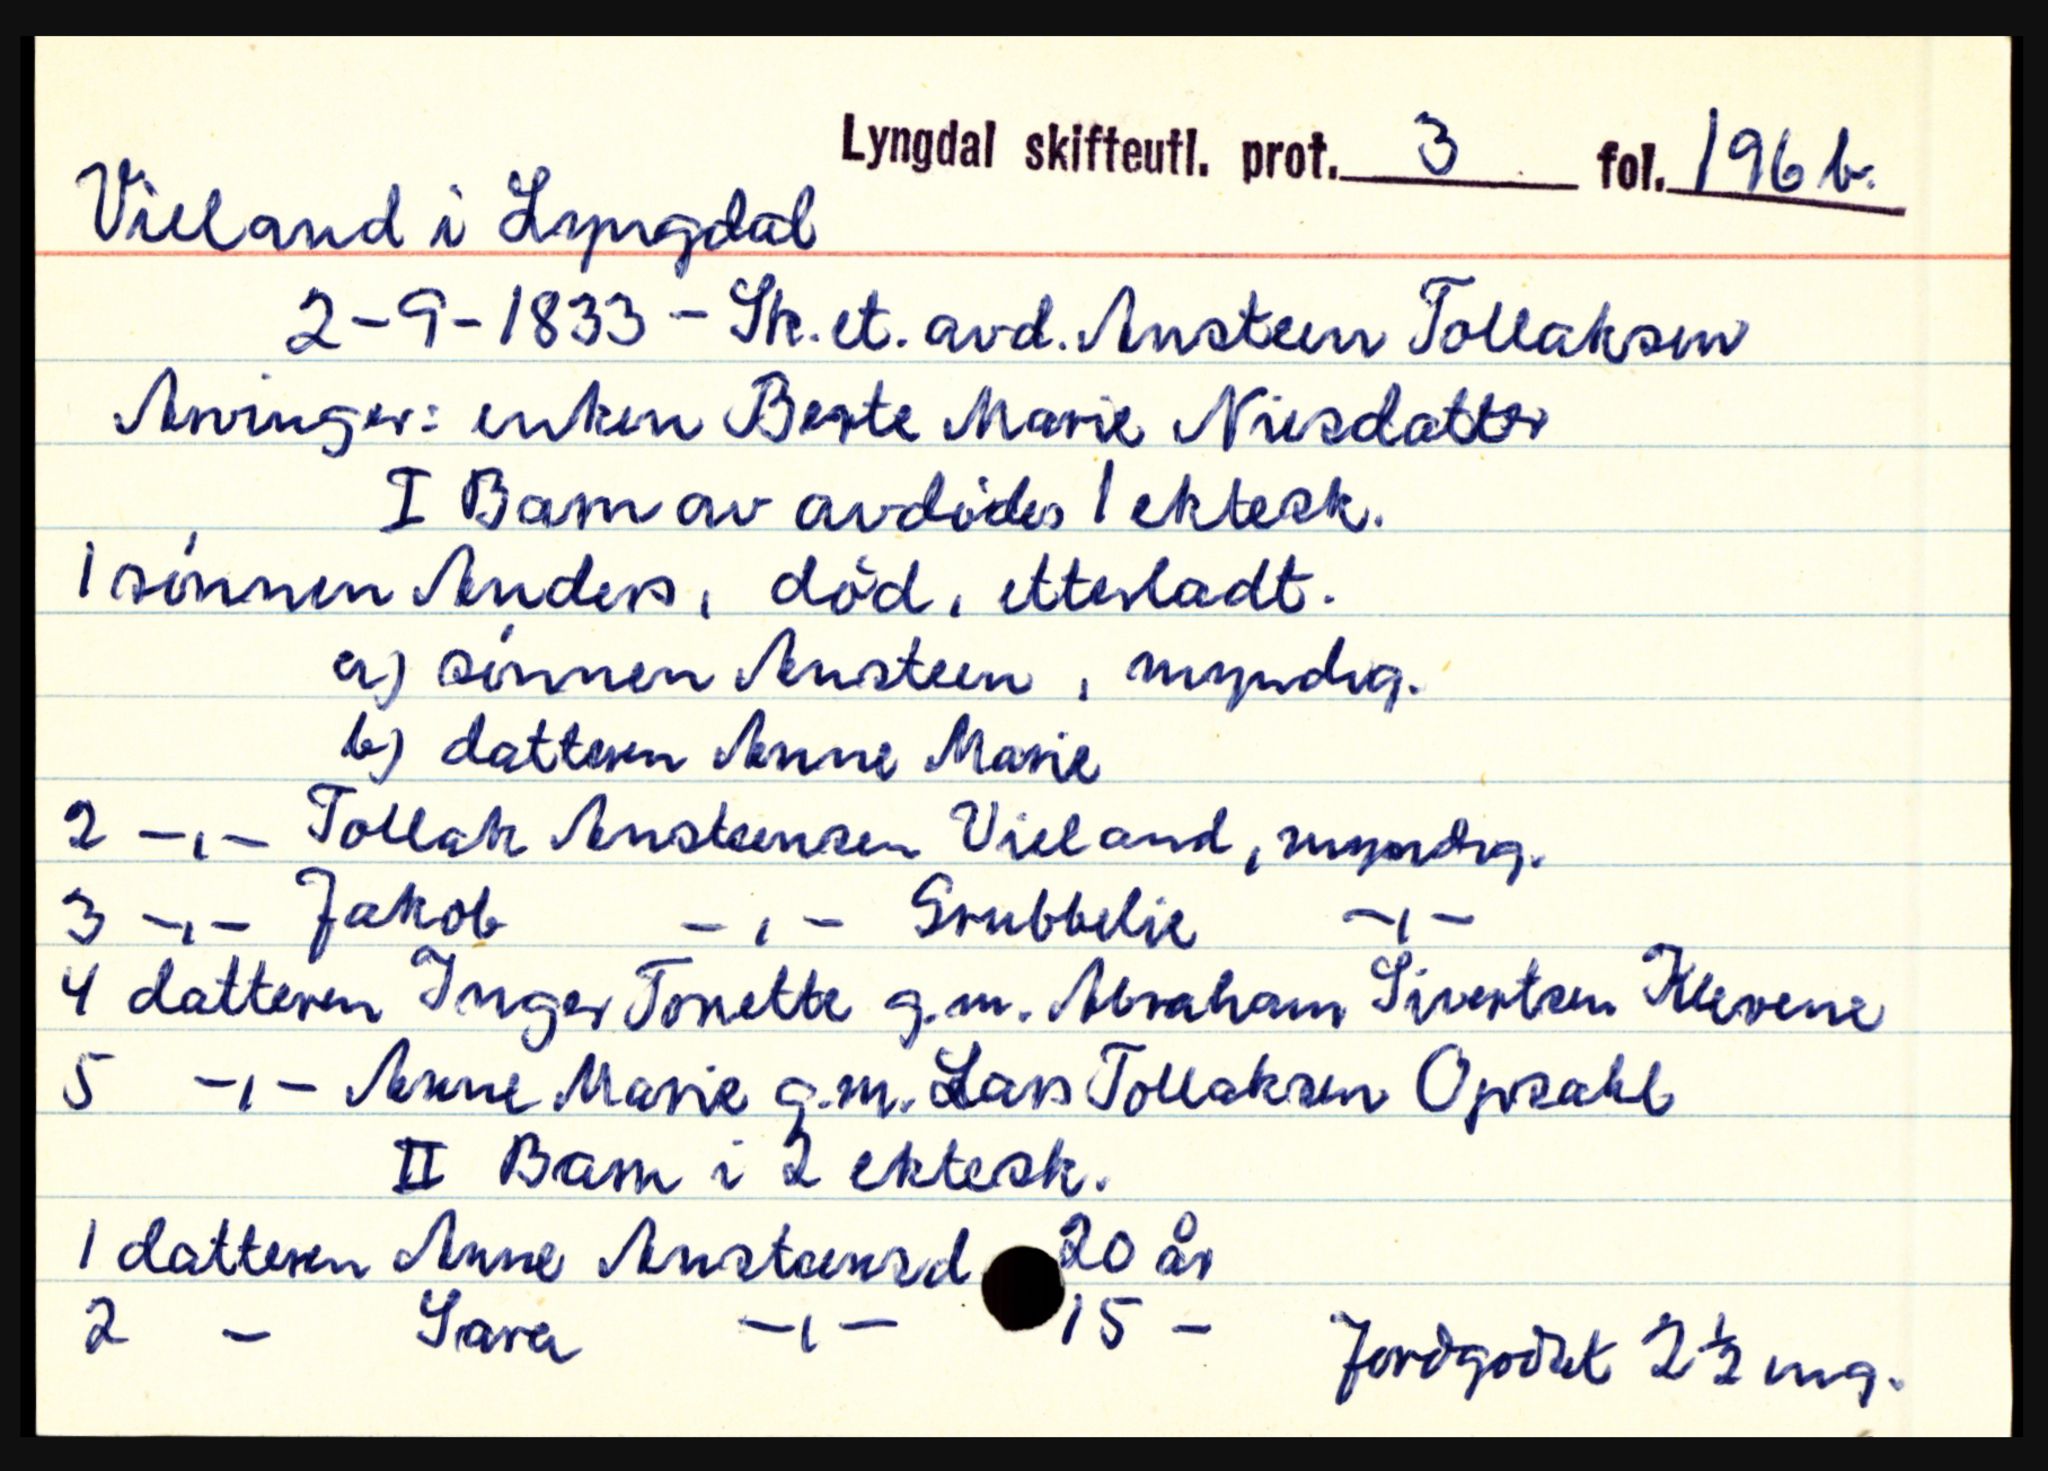 Lyngdal skifteutl. prot. 3 fol. 196 b.
Vieland i Lyngdal
2-9-1833 - Sk. et. avd. Ansteen Tollaksen
Arvinger: enken Berte Marie Niesdatter
I Barn av avdödes 1 ektesk.
1 sönnen Anders, död, etterladt.
a) sönnen Ansteen, myndig.
b) datteren Anne Marie
2 -,- Tollak Ansteensen Vieland, myndig.
3 -,- Jakob -,- Grubbelie -,-
4 datteren Inger Tonette g.m. Abraham Sivertsen Klevene
5 -,- Anne Marie g.m. Lars Tollaksen Opsahl
II Barn i 2 ektesk.
1 datteren Anne Ansteensd 20 år
2 - Sara -,- 15 -
Jordgodset 2 ½ mg.